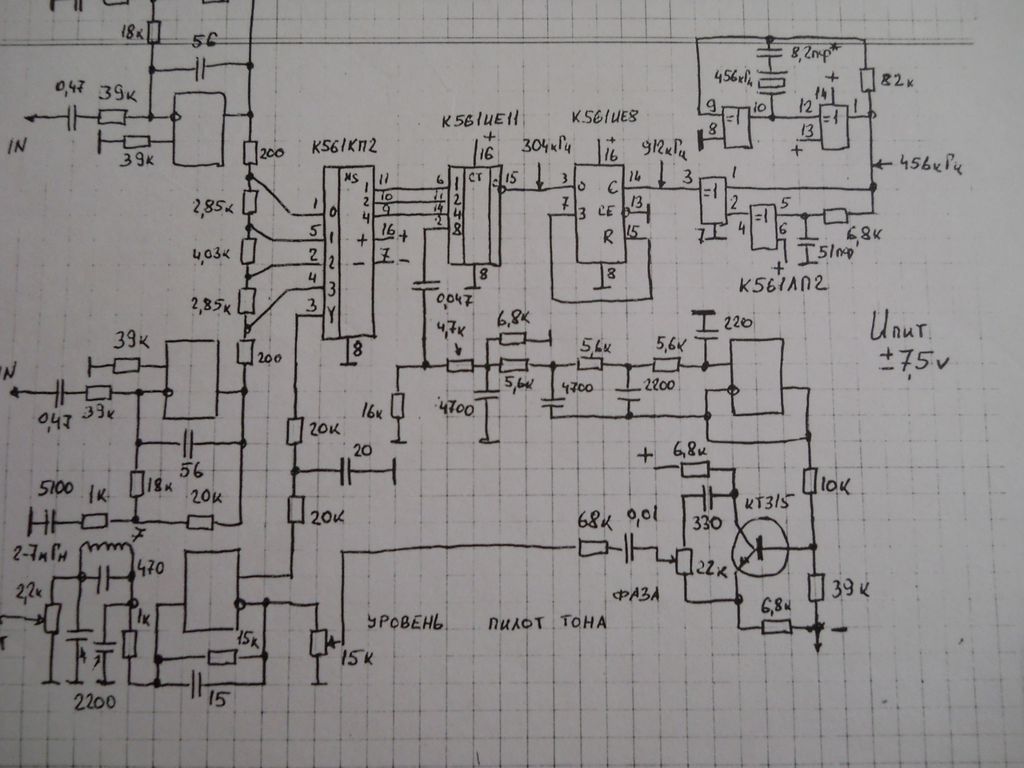 18к
56
0,47
39к
IN
39к
200
2,85к
4,03к
2,85к
200
К561КП2
MS
1
0
5
1
2
2
4
3
3
Y
11
1
10
2
9
4
16
+
+
7
−
−
8
К561ИЕ11
+
16
CT
15
6
1
11
2
14
4
2
8
8
0,047
304кГц
К561ИЕ8
+
16
3
0
C
14
7
3
CE
13
R
15
8
912кГц
8,2пф*
456кГц
+
14
82к
9
=1
10
12
=1
1
8
13
+
456кГц
3
=1
1
2
=1
5
4
6
6,8к
7
51пф
+
К561ЛП2
Uпит
±7,5v
39к
IN
0,47
39к
56
18к
20к
5100
1к
7
4,7к
6,8к
5,6к
5,6к
5,6к
220
16к
4700
4700
2200
20к
20
20к
+
6,8к
330
КТ315
10к
68к
0,01
22к
ФАЗА
39к
6,8к
−
2-7мГн
470
2,2к
1к
2200
15к
15
15к
УРОВЕНЬ ПИЛОТ ТОНА